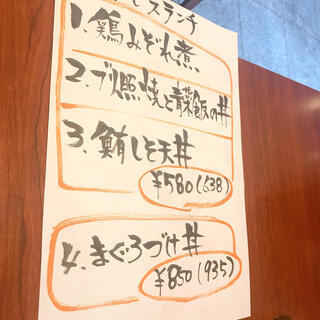 スランチ
1、鶏みぞれ煮
2、ブリ照焼と青菜飯の丼
3、鮪しそ天丼
¥580(638)
4、まぐろづけ丼
¥850(935)